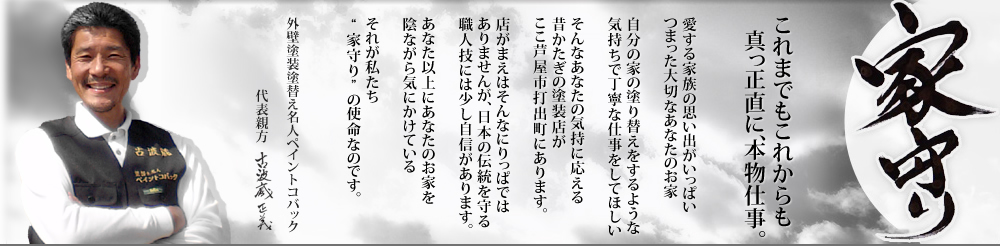 家守り
これまでもこれからも
真っ正直に、本物仕事。
愛する家族の思い出がいっぱい
つまった大切なあなたのお家
自分の家の塗り替えをするような
気持ちで丁寧な仕事をしてほしい
そんなあなたの気持に応える
昔かたぎの塗装店が
ここ芦屋市打出町にあります。
店がまえはそんなにりっぱでは
ありませんが、日本の伝統を守る
職人技には少し自信があります。
あなた以上にあなたのお家を
陰ながら気にかけている
それが私たち
“家守り”の使命なのです。
外壁塗装塗替え名人ペイントコバック
代表親方 古波蔵 正義
古波蔵
ペイントコバック